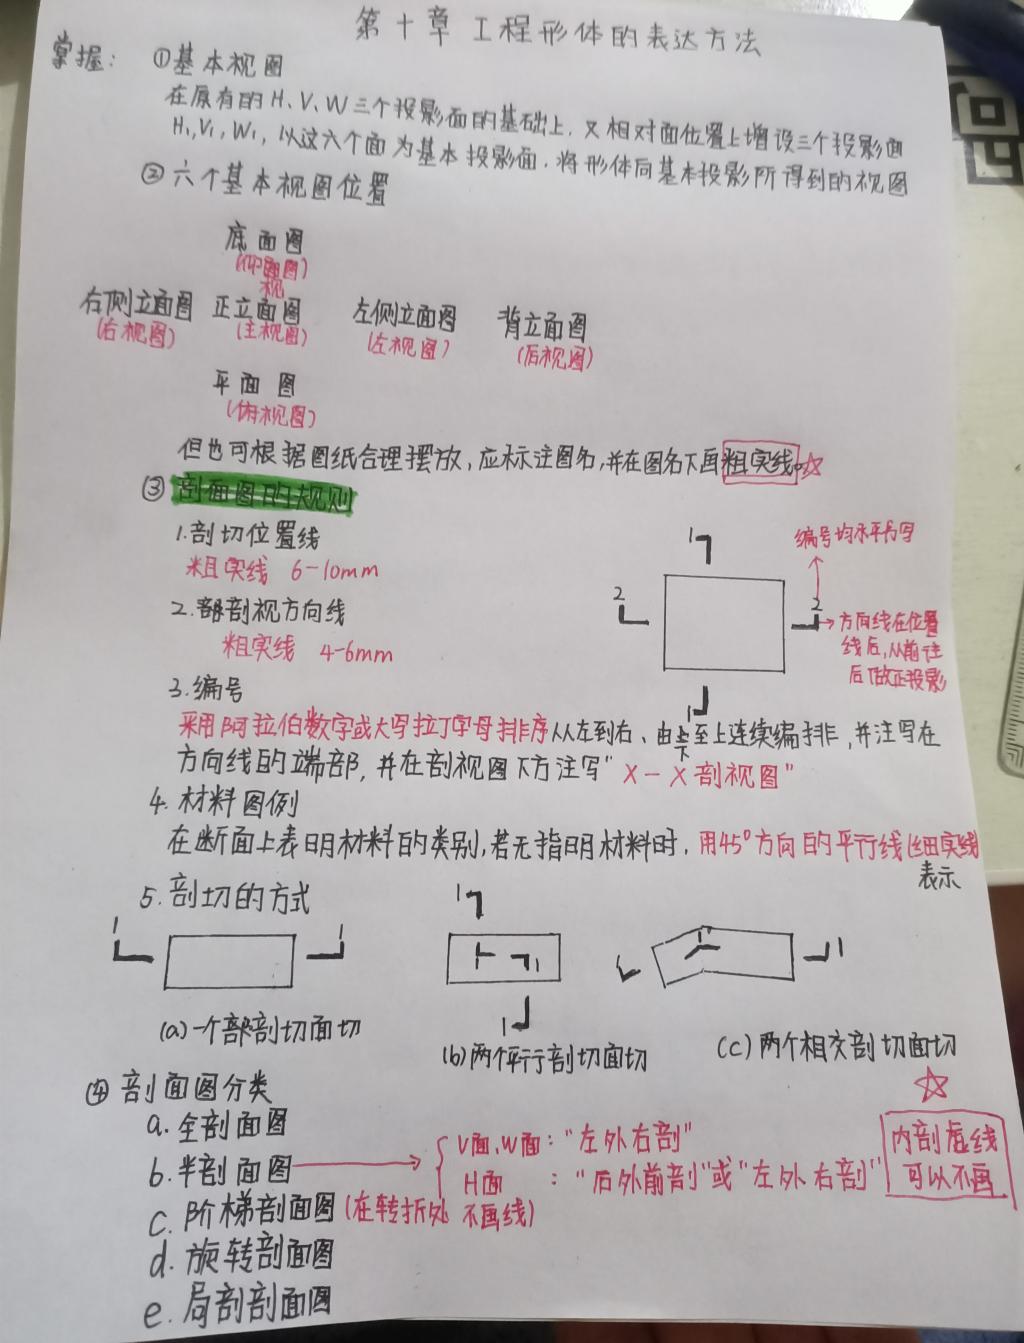 第十章 工程形体的表达方法
掌握：
①基本视图
在原有的H、V、W三个投影面的基础上，又相对面位置上增设三个投影面
H₁,V₁,W₁，以这六个面为基本投影面，将形体向基本投影所得到的视图
②六个基本视图位置
底面图
(仰视图)
右侧立面图 正立面图 左侧立面图 背立面图
(右视图) (主视图) (左视图) (后视图)
平面图
(俯视图)
但也可根据图纸合理摆放，应标注图名，并在图名下画粗实线。☆
③剖面图的规则
1.剖切位置线
粗实线 6-10mm
2.剖视方向线
粗实线 4-6mm
1
2
2
1
编号均水平书写
方向线在位置
线后，从前往
后做正投影
3.编号
采用阿拉伯数字或大写拉丁字母排序从左到右、由下至上连续编排，并注写在
方向线的端部，并在剖视图下方注写“X-X剖视图”
4.材料图例
在断面上表明材料的类别，若无指明材料时，用45°方向的平行线(细实线
表示
5.剖切的方式
1 1
1
1
1
1
1
(a)一个剖切面切
(b)两个平行剖切面切
(c)两个相交剖切面切
④剖面图分类
a.全剖面图
b.半剖面图
V面、W面：“左外右剖”
H面：“后外前剖”或“左外右剖”
☆
内剖虚线
可以不画
c.阶梯剖面图(在转折处不画线)
d.旋转剖面图
e.局剖剖面图